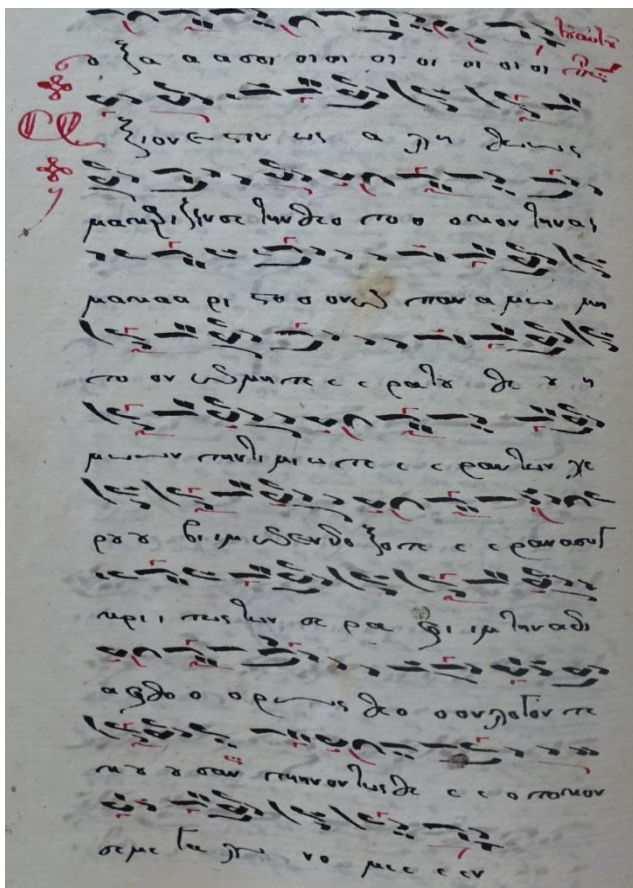 ο ξα α α σοι οι οι οι οι οι οι οι
Αξιον εστιν ως α λη θω ως
μακαριζειν σε την θεο το ο ο κον την αει
μακα α ρι στο ο ον και παν α μω μη
το ον και μητε ε ε ρα του θε ου η
μω ων την τι μι ω τε ε ε ραν των χε
ρου ου βι ιμ και ενδο ξο τε ε ε ραν ασυγ
κρι ι τως των σε ρα φι ιμ την αδι
α φθο ο ο ρως θεο ο ον λογον τε
κου ου σαν την οντως θε ε ε ο τοκον
σε με γα λυ νο με ε ε εν